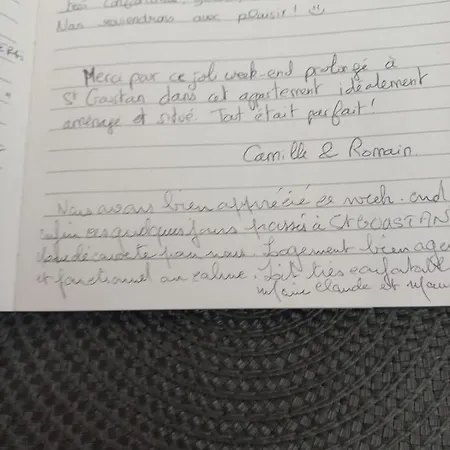 Nous reviendrons avec plaisir !
Merci par ce joli week-end prolongé à
St Goustan dans cet appartement idéalement
aménagé et situé. Tout était parfait !
Camille & Romain.
Nous avons bien apprécié ce week-end
enfin ces quelques jours passés à St GOUSTAN
découverte pour nous. Logement bien agen
et fonctionnel au calme. Lit très confortable
claude et